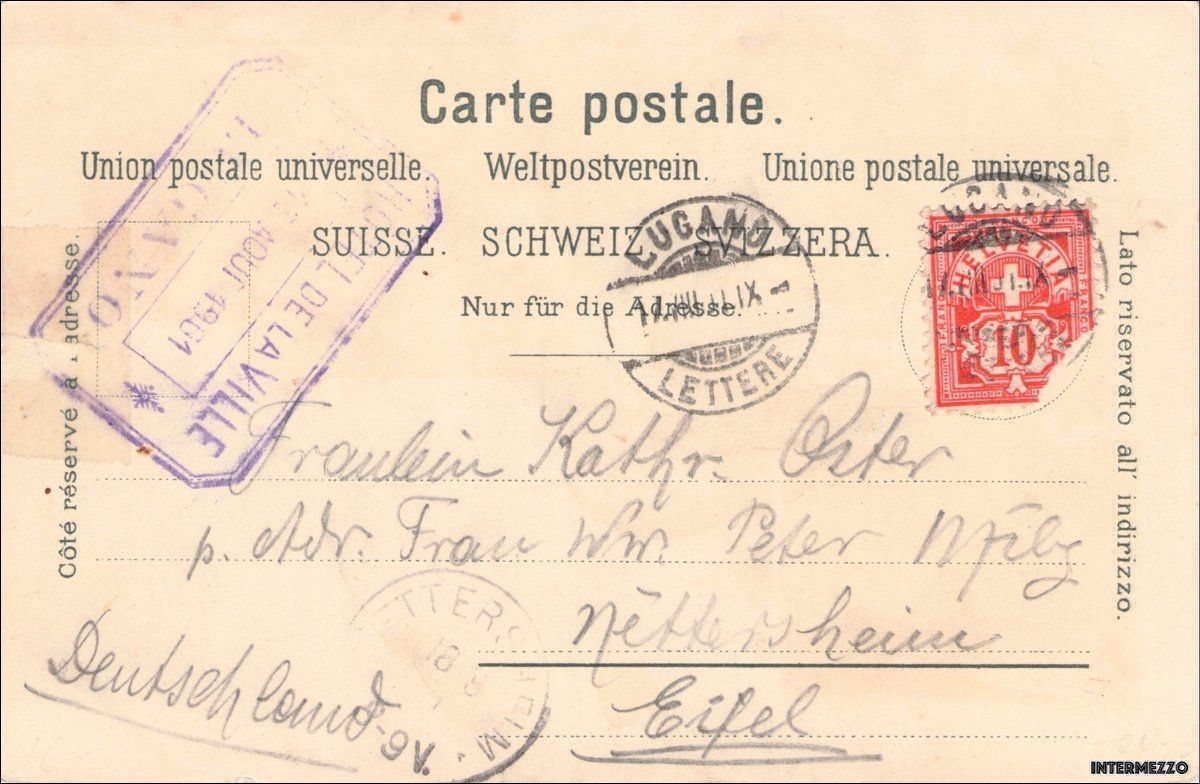 Carte postale.
Union postale universelle. Weltpostverein. Unione postale universale.
SUISSE. SCHWEIZ. SVIZZERA.
Nur für die Adresse.
Côté réservé à l'adresse.
Lato riservato all' indirizzo.
HOTEL DE LA VILLE
AOUT 1901
LUGANO
LUGANO
LETTERE
LUGANO
HELVETIA
FRANCO
FRANCO
10
Fräulein Kathr. Oster
p. Adr. Frau Ww. Peter
Nettersheim
Eifel
Deutschland
NETTERSHEIM
18 8
9V.
INTERMEZZO